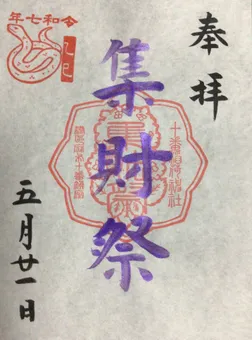 奉拝
集財祭
令和七年
乙巳
十番稲荷神社
五月廿一日